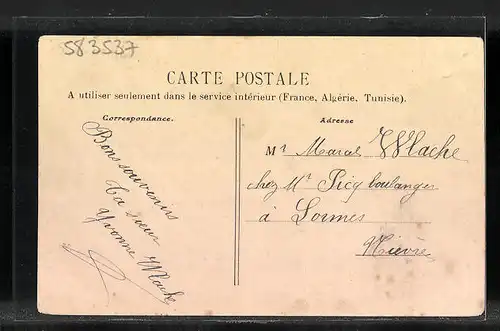 583537
CARTE POSTALE
A utiliser seulement dans le service intérieur (France, Algérie, Tunisie).
Correspondance.
Bons souvenirs
Ta sœur
Yvonne Wlache
Adresse
Mr Marcel Wlache
chez Mr Picq boulanger
à Lormes
Nièvre